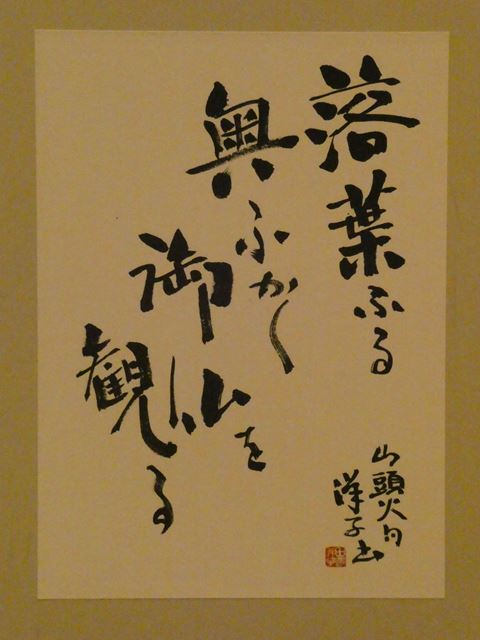 落葉ふる
奥ふかく
御仏を
観る
山頭火句
洋子书